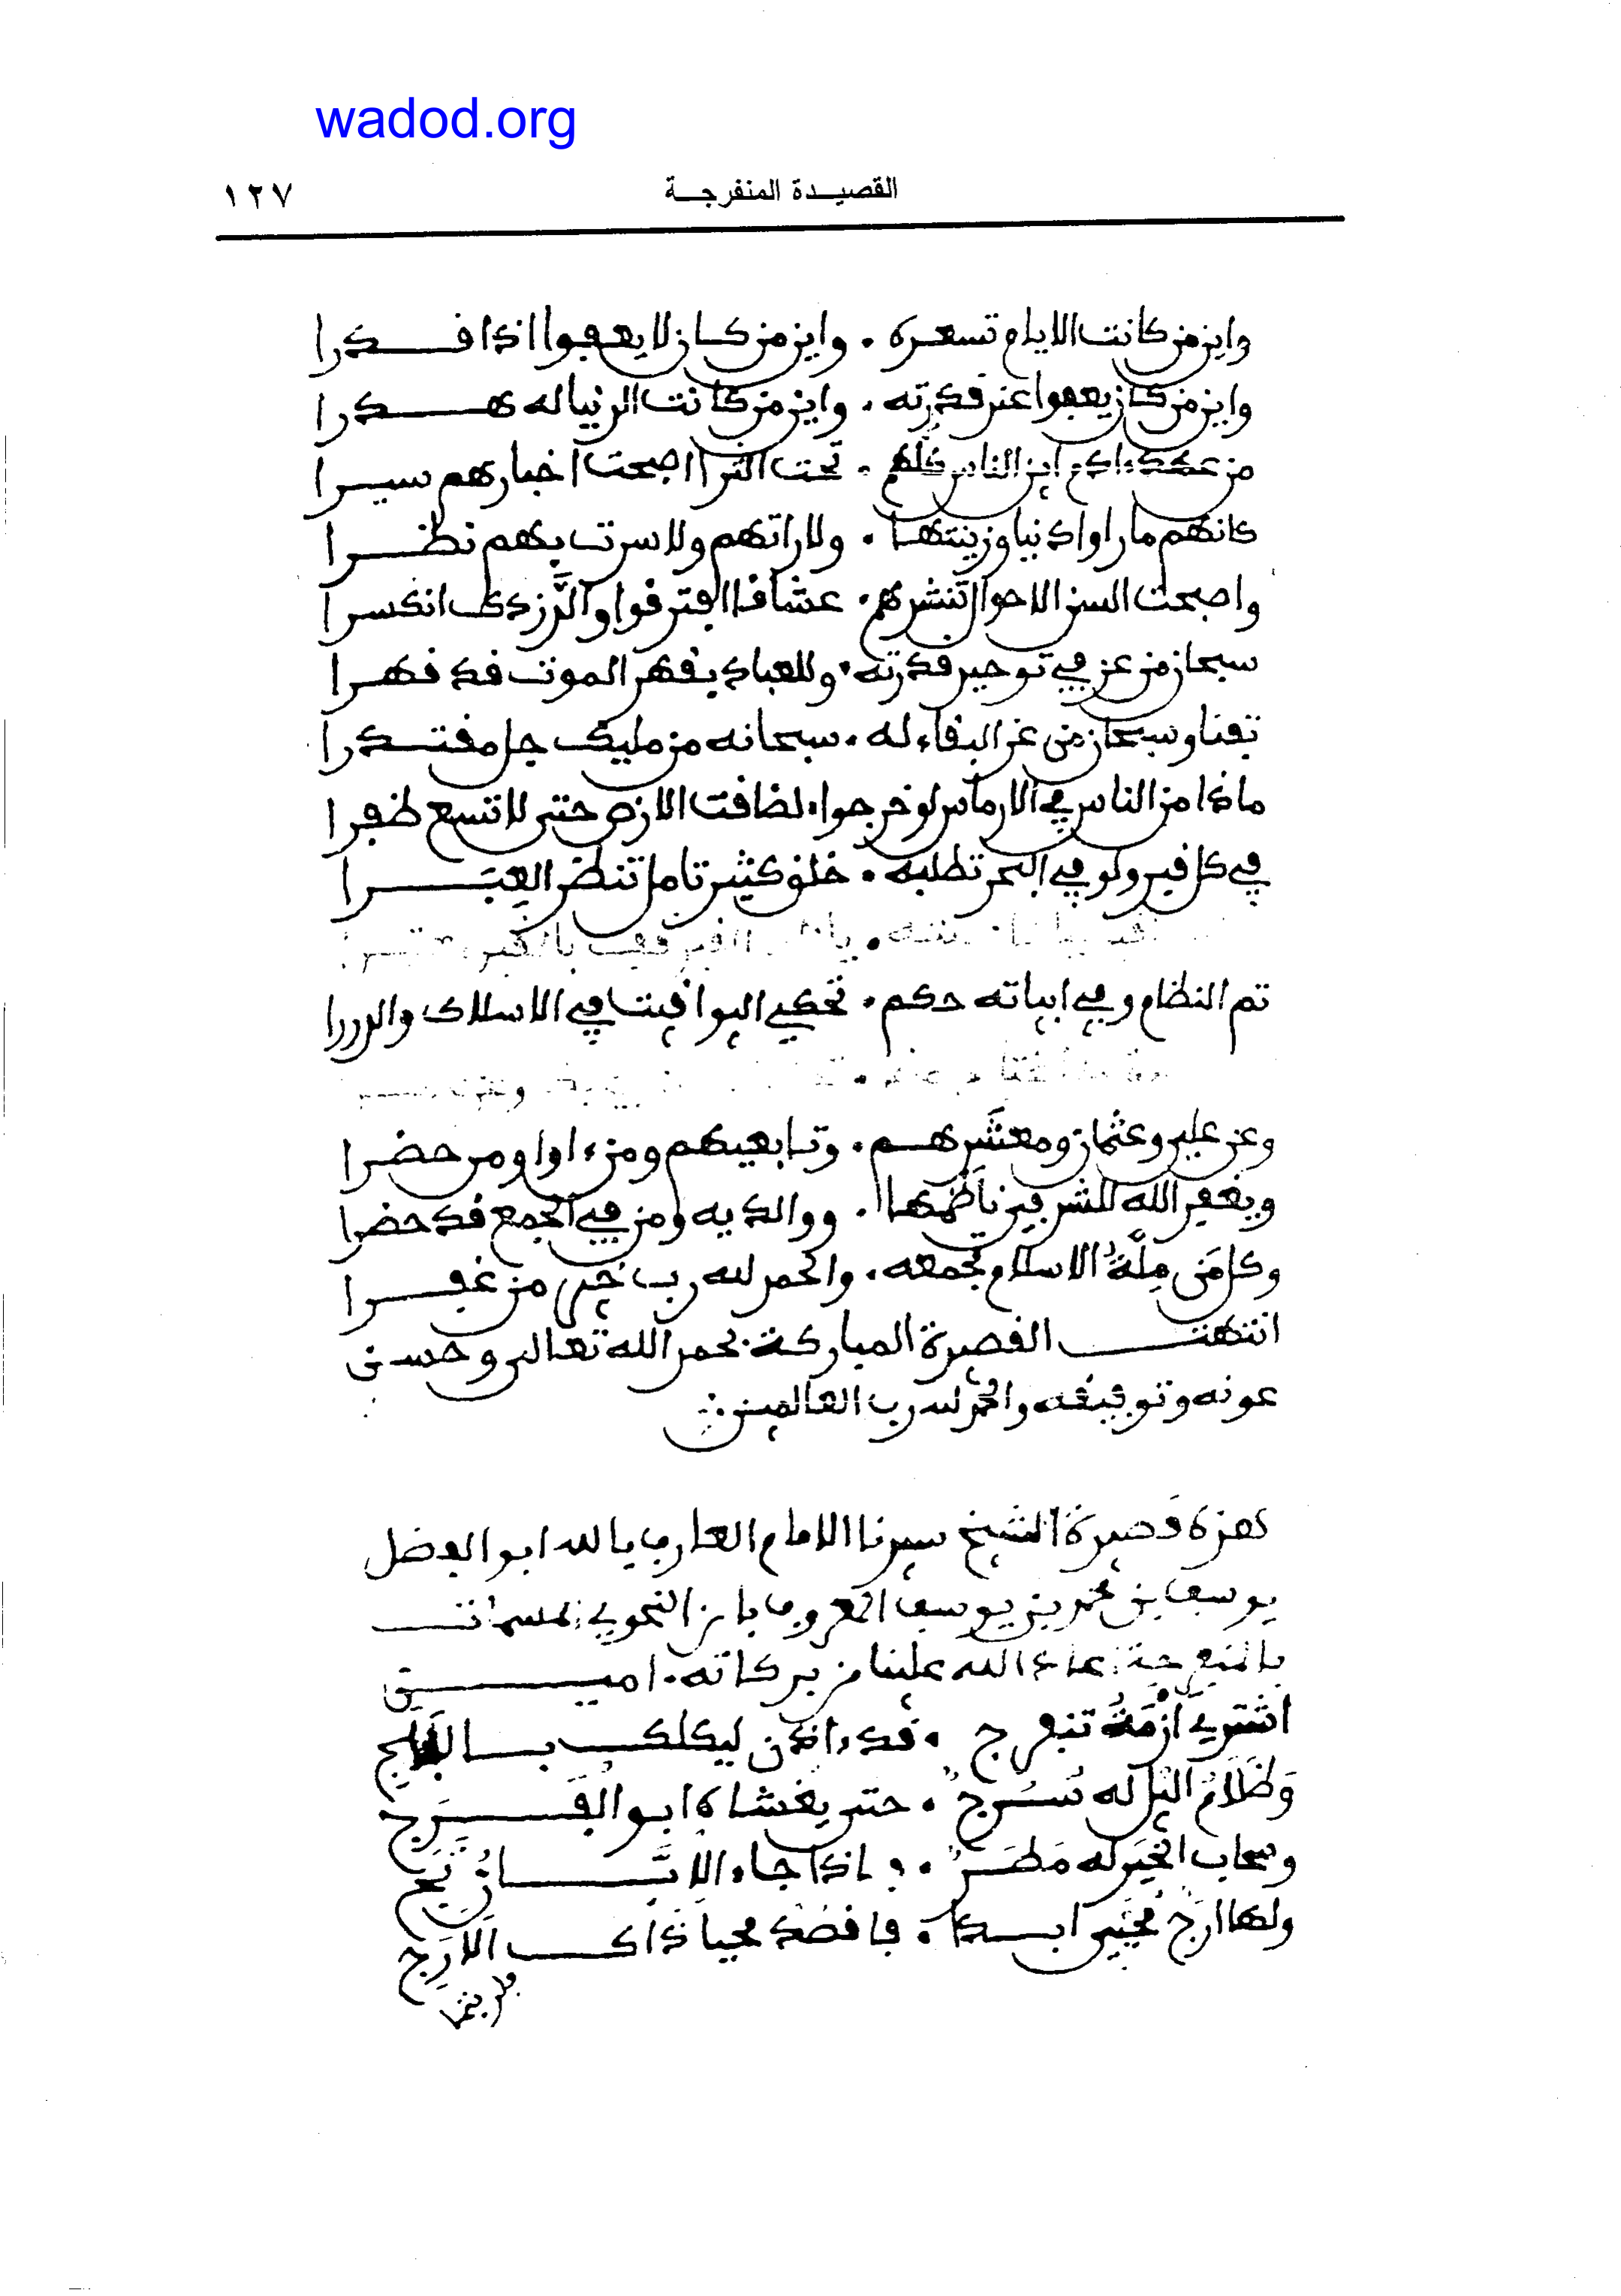 wadod.org
القصيدة المنفرجة
١٢٧
واين من كانت الايام تسعده . واين من كان لا يعفوا اذا قدرا
واين من كان يعفوا عند قدرته . واين من كانت الدنيا له هدرا
من عهد ءادم اين الناس كلهم . تحت الثرا اصبحت اخبارهم سيرا
كانهم ما راوا دنيا وزينتها . ولا راتهم ولا سرت بهم نظرا
واصبحت السن الاحوال تنشرهم . عشاقا افترقوا والدر انكسرا
سبحان من عز في توحيد قدرته . وللعباد بقهر الموت قد قهرا
تفنا وسبحان من عز البقاء له . سبحانه من مليك جل مقتدرا
ماذا من الناس في الارماس لو خرجوا . لضاقت الارض حتى لا تسع ظفرا
في كل قبر ولو في البحر تطلبه . خلق كثير تامل تنظر العِبَرا
تم النظام وفي ابياته حكم . تحكي اليواقيت في الاسلاك والدررا
وعن علي وعثمان ومعشرهم . وتابعيهم ومن ءاوا ومن حضرا
ويغفر الله للشرفي ناظمها . ووالديه ومن في الجمع قد حضرا
وكل من مِلَّةُ الاسلام تجمعه . والحمد لله رب خير من غفرا
انتهت القصيدة المباركة بحمد الله تعالى وحسن
عونه وتوفيقه والحمد لله رب العالمين
هذه قصيدة الشيخ سيدنا الامام العارف بالله ابو الفضل
يوسف بن محمد بن يوسف المعروف بابن النحوي المسمات
بالمنفرجة اعاد الله علينا من بركاته . امين
اشتدي أَزْمَةُ تنفرج . قد ءاذن ليلك بالبلج
وَظَلَامُ اليل له سُرُجٌ . حتى يغشاه ابو الفَرَج
وسحاب الخَيْر له مَطَرٌ . فاذا جاء الاِبَّانُ تَجِ
ولها ارَجٌ مُحْيِي ابدا . فاقصد محيا ذاك الاَرَج